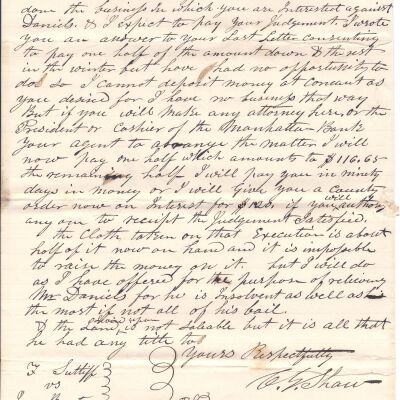 dom the business in which you are Interested against
Daniels. & I expect to pay your Judgement. I wrote
you an answer to your Last Letter consenting
to pay one half of the amount down & the rest
in the winter but have had no opportunity to
do so I cannot deposit money at as
you desired for I have no business that way
But if you will make any attorney here, or the
President or Cashier of the Manhattan Bank
your agent to arrange the matter I will
now pay one half which amounts to $116.65
the remaining half I will pay you in ninty
days in money or I will give you a County
order now on Interest for $125, if you will authorize
any one to receipt the Judgement Satisfied.
the Cloth taken on that Execution is about
half of it now on hand and it is impossible
to raise the money on it. but I will do
as I have offered for the purpose of relieving
Mr Daniels for he is Insolvent as well as
the most if not all of his bail.
& the Land levied upon is not saleable but it is all that
he had any title to
Yours Respectfully
C. Y. Shaw
F Sutliff
vs